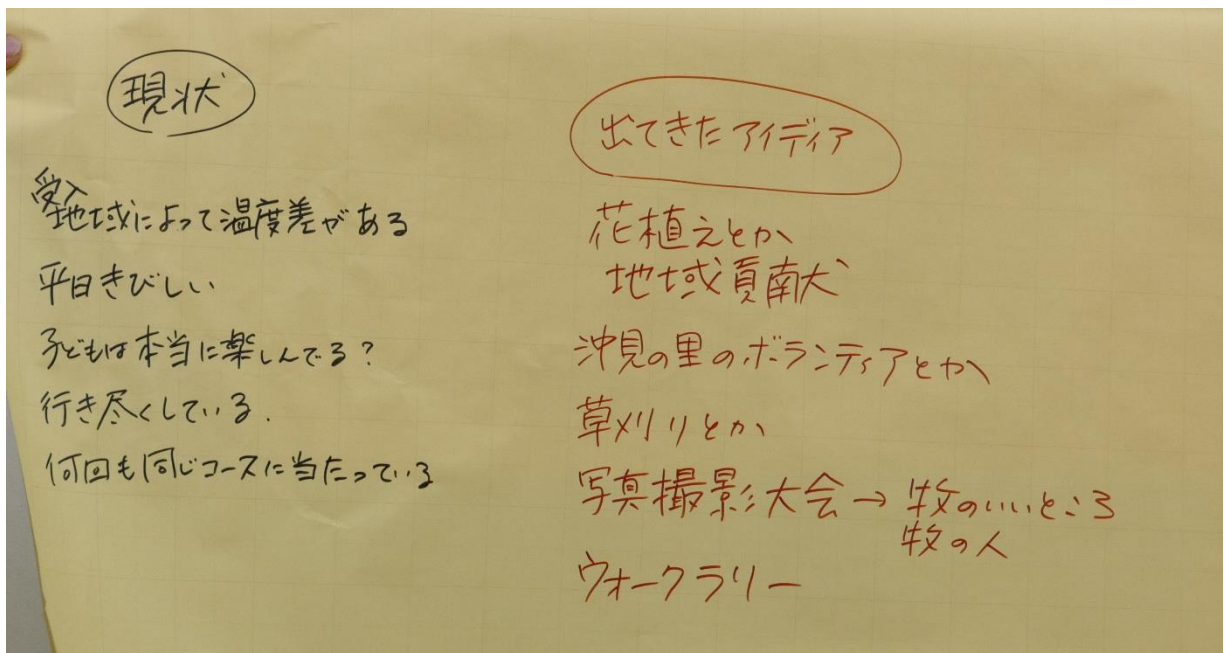 現状
受入
地域によって温度差がある
平日きびしい
子どもは本当に楽しんでる?
行き尽くしている.
何回も同じコースに当たっている
出てきたアイディア
花植えとか
地域貢献
沖見の里のボランティアとか
草刈りとか
写真撮影大会→牧のいいところ
牧の人
ウォークラリー